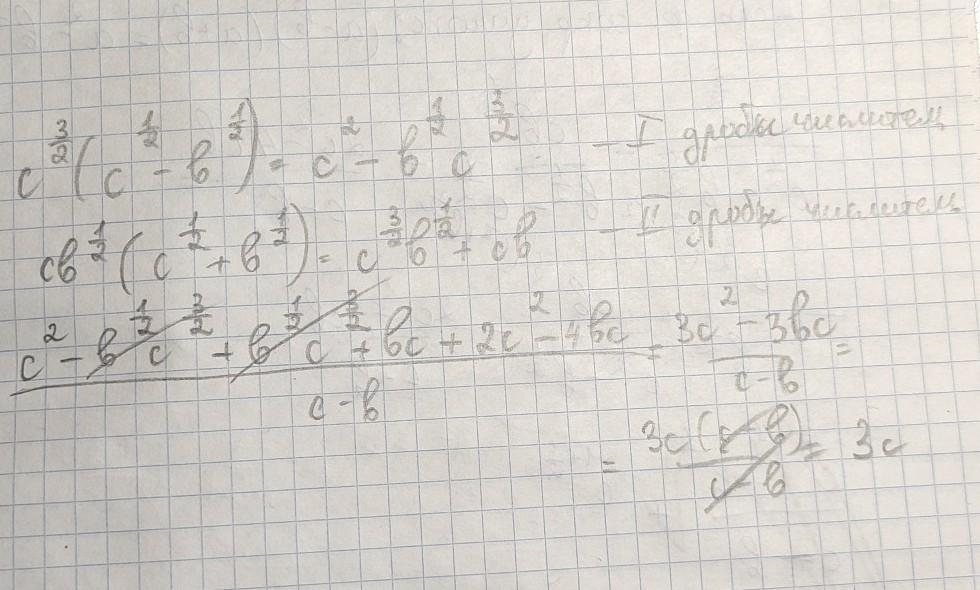 c^(3/2) (c^(1/2) - b^(1/2)) = c^2 - b^(1/2) c^(3/2) - I дроби числитель
cb^(1/2) (c^(1/2) + b^(1/2)) = c^(3/2) b^(1/2) + cb - II дробь числитель
(c^2 - b^(1/2) c^(3/2) + b^(1/2) c^(3/2) + bc + 2c^2 - 4bc) / (c - b) = (3c^2 - 3bc) / (c - b) =
= 3c (c - b) / (c - b) = 3c